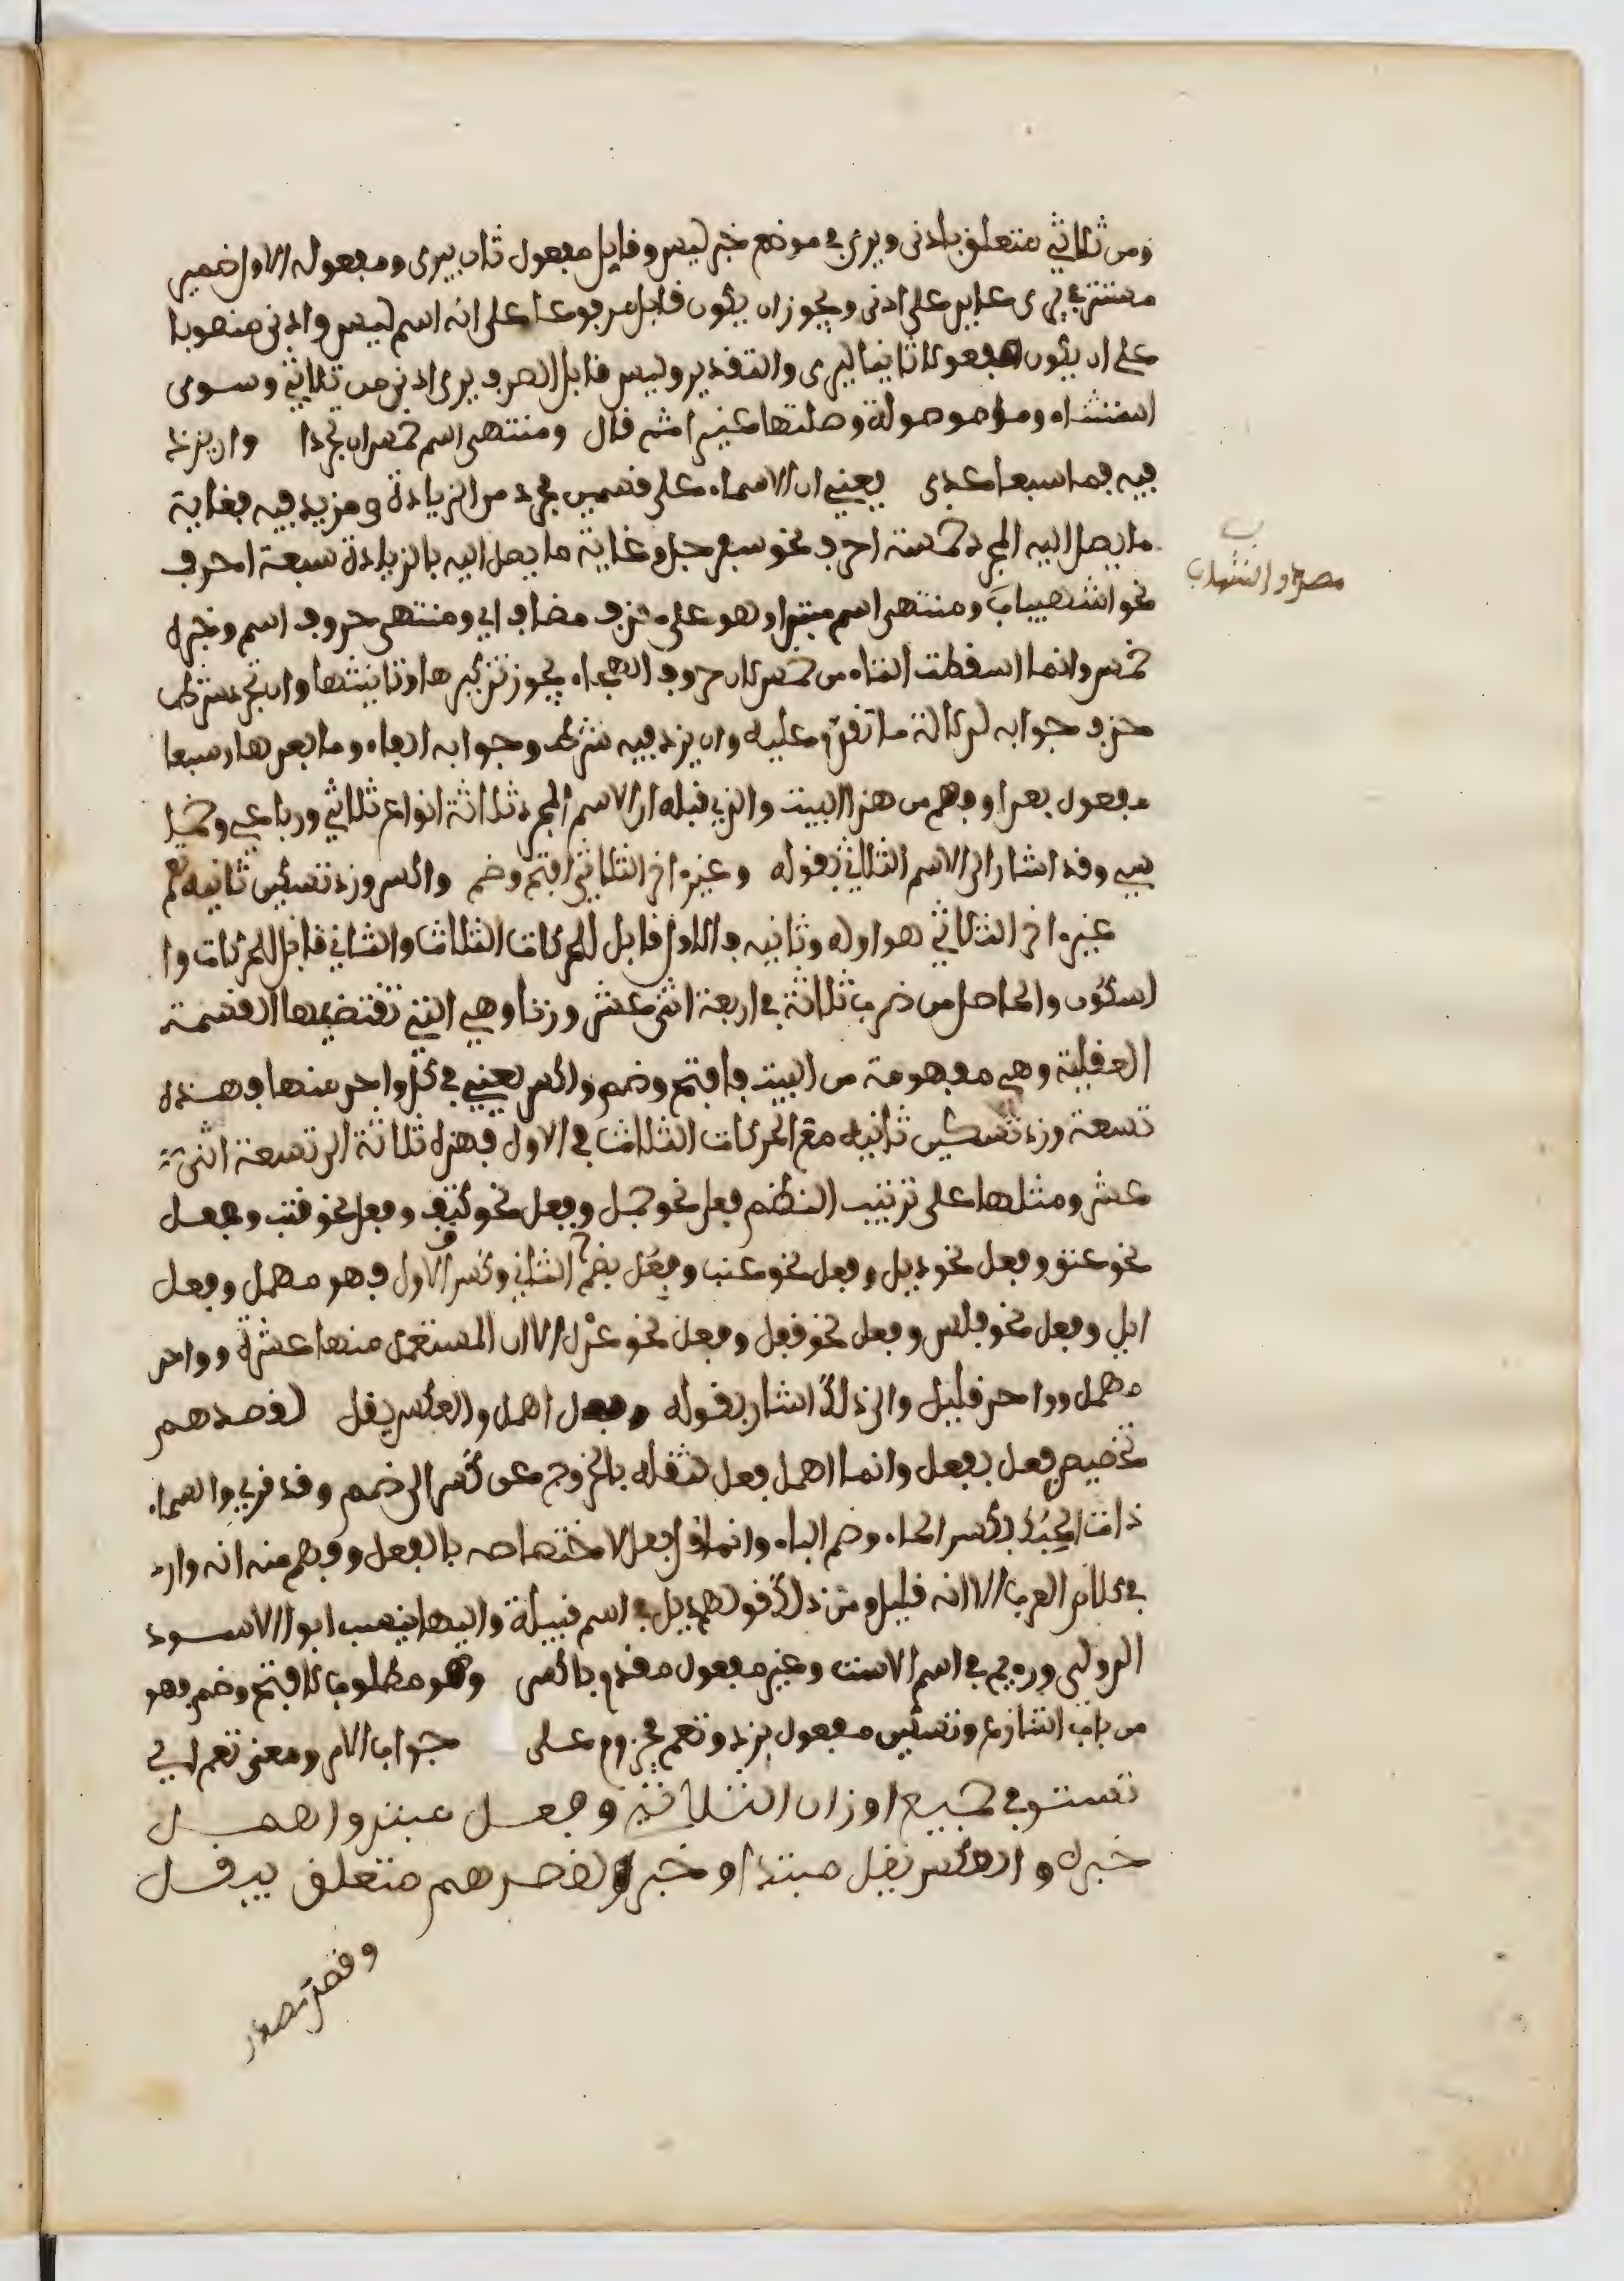 ومن ثلاثي متعلق بادنى ويرى في موضع خبر ليس وقابل مفعول ثان بيرى ومفعوله الاول ضمير
مستتر في يرى عايد على ادنى ويجوز ان يكون قابل مرفوعا على انه اسم ليس وادنى منصوبا
على ان يكون مفعولا ثانيا ليرى والتقدير وليس قابل الصرف يرى ادنى من ثلاثي وسوى
استثناء وما موصولة وصلتها غيرا ثم قال ومنتهى اسم خمس ان تجردا وان يزد
فيه فما سبعا عدى يعني ان الاسماء على قسمين مجرد من الزيادة ومزيد فيه فغاية
ما يصل اليه المجرد خمسة احرف نحو سفرجل وغاية ما يصل اليه بالزيادة سبعة احرف
نحو اشهيباب ومنتهى اسم مبتدا وهو على حذف مضاف اي ومنتهى حروف اسم وخبره
خمس وانما اسقطت التاء من خمس لان حروف الهجاء يجوز تذكيرها وتانيثها وان تجرد شرط
حذف جوابه لدلالة ما تقدم عليه وان يزد فيه شرط وجوابه الفاء وما بعدها وسبعا
مفعول بعدا وفهم من هذا البيت والذي قبله ان الاسم المجرد ثلاثة انواع ثلاثي ورباعي وخما
سي وقد اشار الى الاسم الثلاثي بقوله وغير اخر الثلاثي افتح وضم واكسر وزد تسكين ثانيه تعم
غير اخر الثلاثي هو اوله وثانيه فالاول قابل للحركات الثلاث والثاني قابل للحركات وا
لسكون والحاصل من ضرب ثلاثة في اربعة اثنى عشر وزنا وهي التي تقتضيها القسمة
العقلية وهي مفهومة من البيت فافتح وضم واكسر يعني في كل واحد منها فهذه
تسعة وزد تسكين ثانيه مع الحركات الثلاث في الاول فهذه ثلاثة الى تسعة اثنى
عشر ومثلها على ترتيب النظم فعل نحو جمل وفعل نحو كتف وفعل نحو وفعل
نحو عنق وفعل نحو ديل وفعل نحو عنب وفعل بضم الثاني وكسر الاول فهو مهمل وفعل
ابل وفعل نحو فلس وفعل نحو قفل وفعل نحو عدل الا ان المستعمل منها عشرة وواحد
مهمل وواحد قليل والى ذلك اشار بقوله وفعل اهمل والعكس يقل لقصدهم
تخصيص فعل بفعل وانما اهمل فعل لثقله بالخروج من كسر الى ضم وقد قري والسماء
ذات الحبك بكسر الحاء وضم الباء وانما قل فعل لاختصاصه بالفعل وفهم منه انه وارد
في كلام العرب الا انه قليل ومن ذلك قولهم ديل في اسم قبيلة واليها ينسب ابو الاسود
الدولي وريم في اسم الاست وغير مفعول مقدم باكسر وهو مطلوب لافتح وضم فهو
من باب التنازع وتسكين مفعول بزد وتعم مجزوم على جواب الامر ومعنى تعم اي
تستوفي جميع اوزان الثلاثي وفعل مبتدا واهمل
خبره والعكس يقل مبتدا وخبر ولقصدهم متعلق بيقل
وقصد مصدر